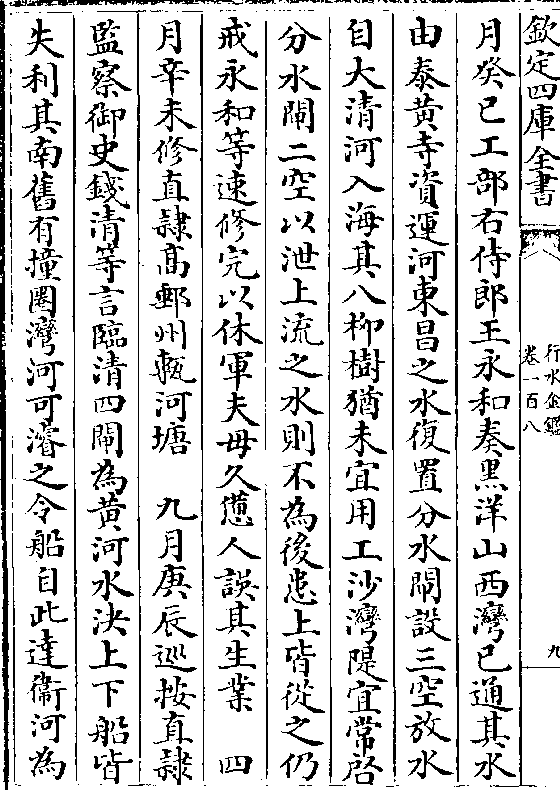 欽定四庫全書
行水金鑑
卷一百八
九
月癸已工部右侍郎王永和奏黒洋山西灣已通其水
由泰黄寺資運河東昌之水復置分水閘設三空放水
自大清河入海其八柳樹猶未宜用工沙灣隄宜常啓
分水閘二空以泄上流之水則不為後患上皆從之仍
戒永和等速修完以休軍夫毋久憊人誤其生業　四
月辛未修直隷髙郵州甎河塘　九月庚辰巡按直隷
監察御史錢清等言臨清四閘為黄河水決上下船皆
失利其南舊有撞圏灣河可濬之令船自此達衞河為